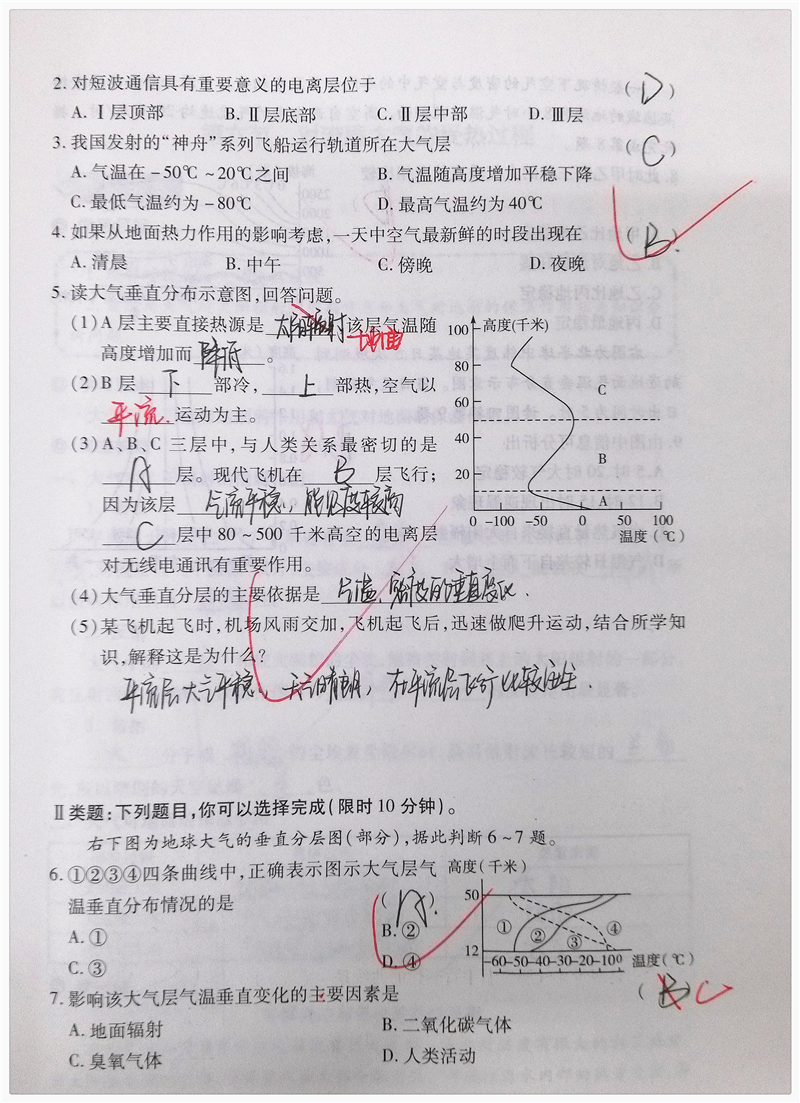 2. 对短波通信具有重要意义的电离层位于 ( D )
A. Ⅰ层顶部 B. Ⅱ层底部 C. Ⅱ层中部 D. Ⅲ层
3. 我国发射的“神舟”系列飞船运行轨道所在大气层 ( C )
A. 气温在-50℃~20℃之间 B. 气温随高度增加平稳下降
C. 最低气温约为-80℃ D. 最高气温约为40℃
4. 如果从地面热力作用的影响考虑,一天中空气最新鲜的时段出现在 ( B. )
A. 清晨 B. 中午 C. 傍晚 D. 夜晚
5. 读大气垂直分布示意图,回答问题。
(1)A层主要直接热源是 太阳辐射 该层气温随
地面
高度增加而 降低 。
(2)B层 下 部冷, 上 部热,空气以
平流 运动为主。
(3)A、B、C三层中,与人类关系最密切的是
A 层。现代飞机在 B 层飞行;
因为该层 气流平稳、能见度较高
C 层中80~500千米高空的电离层
对无线电通讯有重要作用。
(4)大气垂直分层的主要依据是 气温、密度的垂直变化.
(5)某飞机起飞时,机场风雨交加,飞机起飞后,迅速做爬升运动,结合所学知
识,解释这是为什么?
平流层大气平稳、天气晴朗,在平流层飞行比较安全.
100 高度(千米)
80
60
40
20
C
B
A
0 -100 -50 0 50 100
温度(℃)
Ⅱ类题:下列题目,你可以选择完成(限时10分钟)。
右下图为地球大气的垂直分层图(部分),据此判断6~7题。
6. ①②③④四条曲线中,正确表示图示大气层气
温垂直分布情况的是 ( A. )
A. ① B. ②
C. ③ D. ④
高度(千米)
50
① ② ③ ④
12
-60-50-40-30-20-10 0 温度(℃)
7. 影响该大气层气温垂直变化的主要因素是 ( B ) C
A. 地面辐射 B. 二氧化碳气体
C. 臭氧气体 D. 人类活动